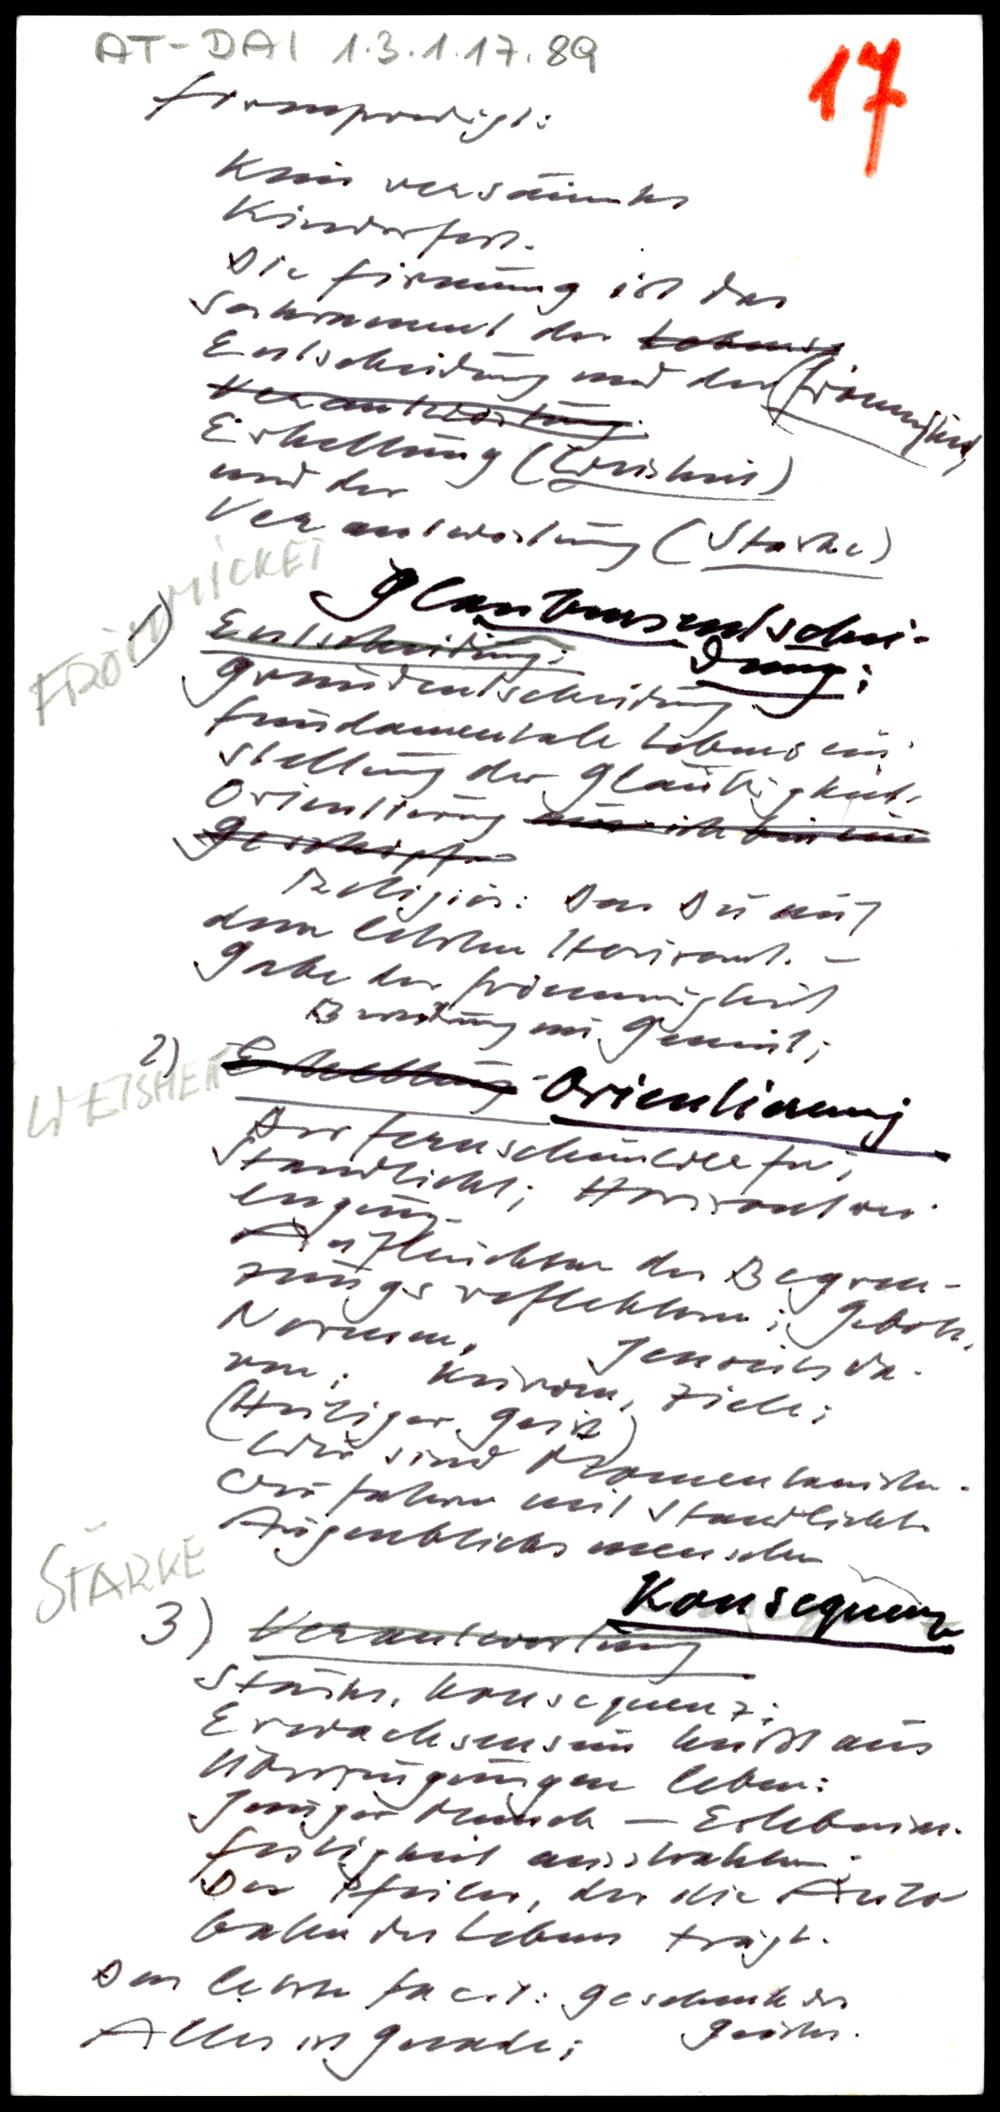 AT-DAI 1.3.1.17.89
17
Firmpredigt:
Kein versäumtes
Kinderfest.
Die Firmung ist das
Sakrament der Lebens
Entscheidung und der (Frömmigkeit)
Verantwortung.
Erhellung (Weisheit)
und der
Verantwortung (Stärke)
FRÖMMIGKEIT
1) Entscheidung: Glaubensentschei-
dung:
Grundentscheidung
fundamentale Lebensein-
stellung der Gläubigkeit.
Orientierung
Geschöpf
Religiös: Das Du auf
dem letzten Horizont. -
Gabe der Frömmigkeit
Bindung im Gemüt;
WEISHEIT
2) Erhellung Orientierung
Der Fernscheinwerfer;
Standlicht; Horizontver-
engung.
Aufleuchten der Begren-
zungsreflektoren; Gebote,
Normen, Jenseits da-
von: Ziele;
(Heiliger Geist)
Wir sind Momentmenschen.
Wir fahren mit Standlicht.
Augenblicksmenschen
STÄRKE
3) Verantwortung Konsequenz
Stärke, Konsequenz;
Erwachsensein heißt aus
Überzeugungen leben:
Junger Mensch — Erlebnis.
Festigkeit ausstrahlen:
Der Pfeiler, der die Auto
bahn des Lebens trägt.
Das letzte Facit: Geschenk des
Geistes.
Alles ist Gnade;